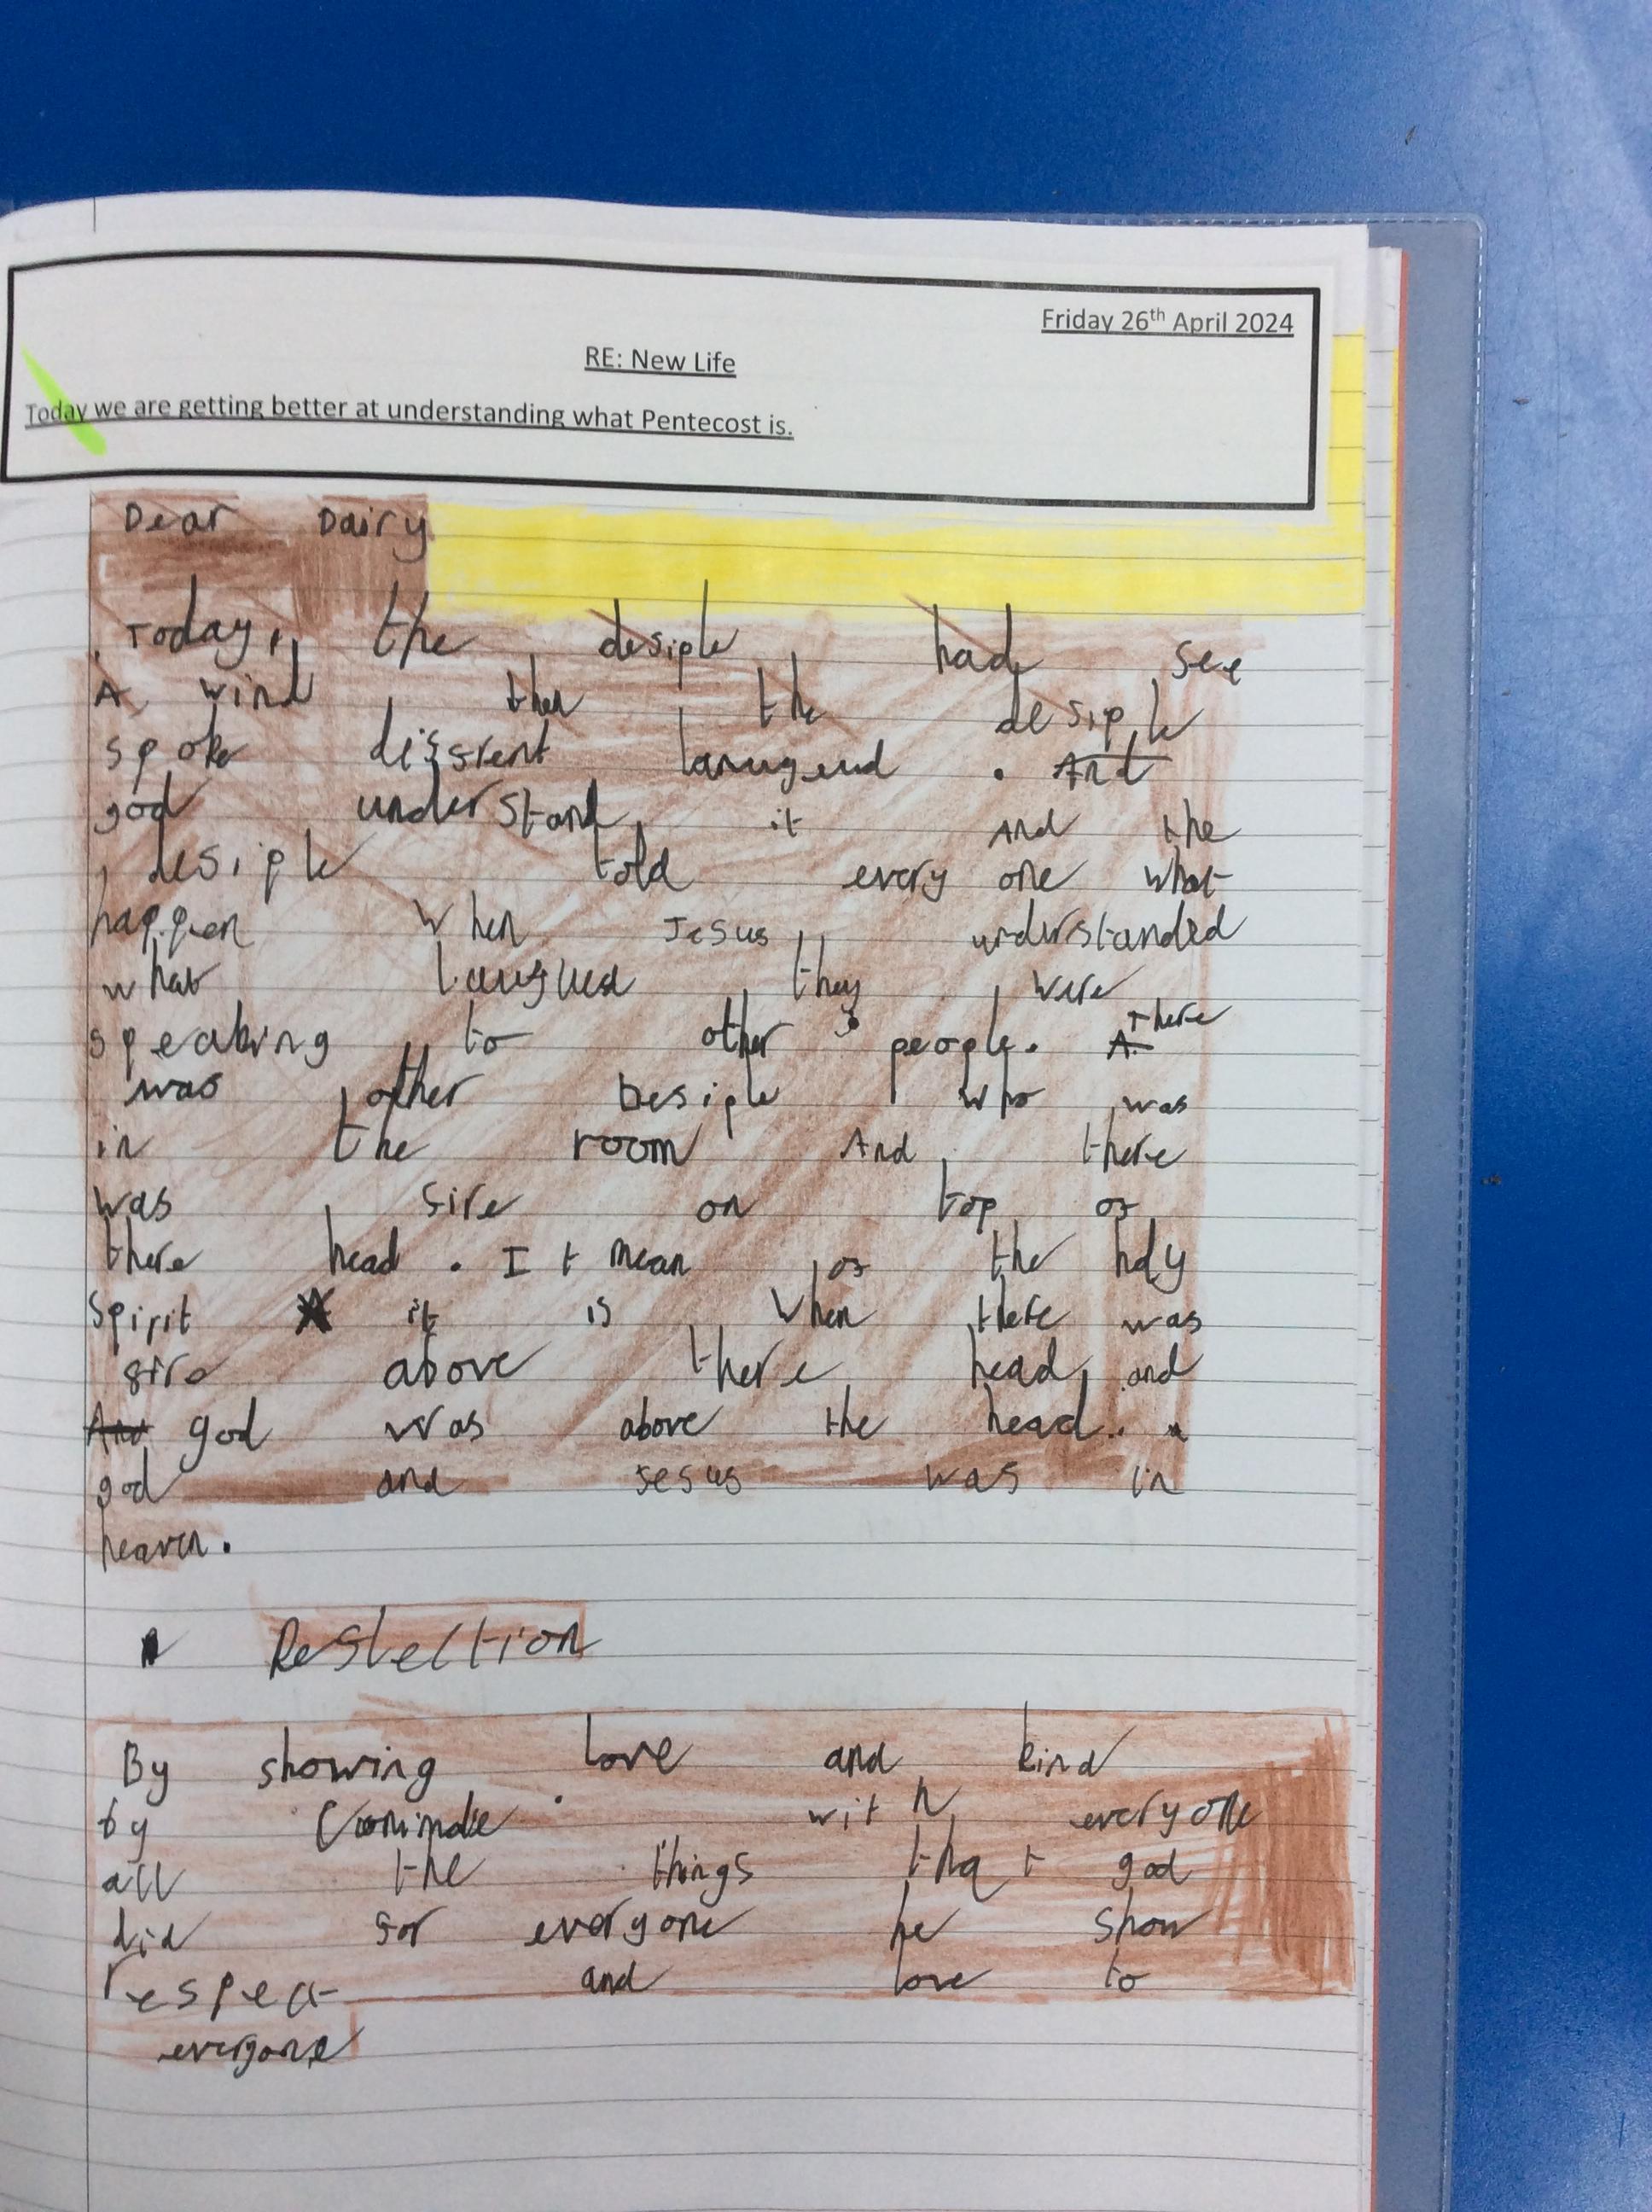 Friday 26th April 2024
RE: New Life
Today we are getting better at understanding what Pentecost is.
Dear Dairy
Today, the desiple had see
A wind then the desiple
spoke diffrent . And
god understand it And the
desiple told every one what
happen when Jesus understanded
what they were
speaking to other people. A There
was other Desiple who was
in the room And there
was fire on top of
there head . It mean of the holy
Spirit it is when there was
fire above there head and
And god was above the head.
god and Jesus was in
heaven.
Reflection
By showing love and kind
by with everyone
all the things that god
did for everyone he show
respect and love to
everyone